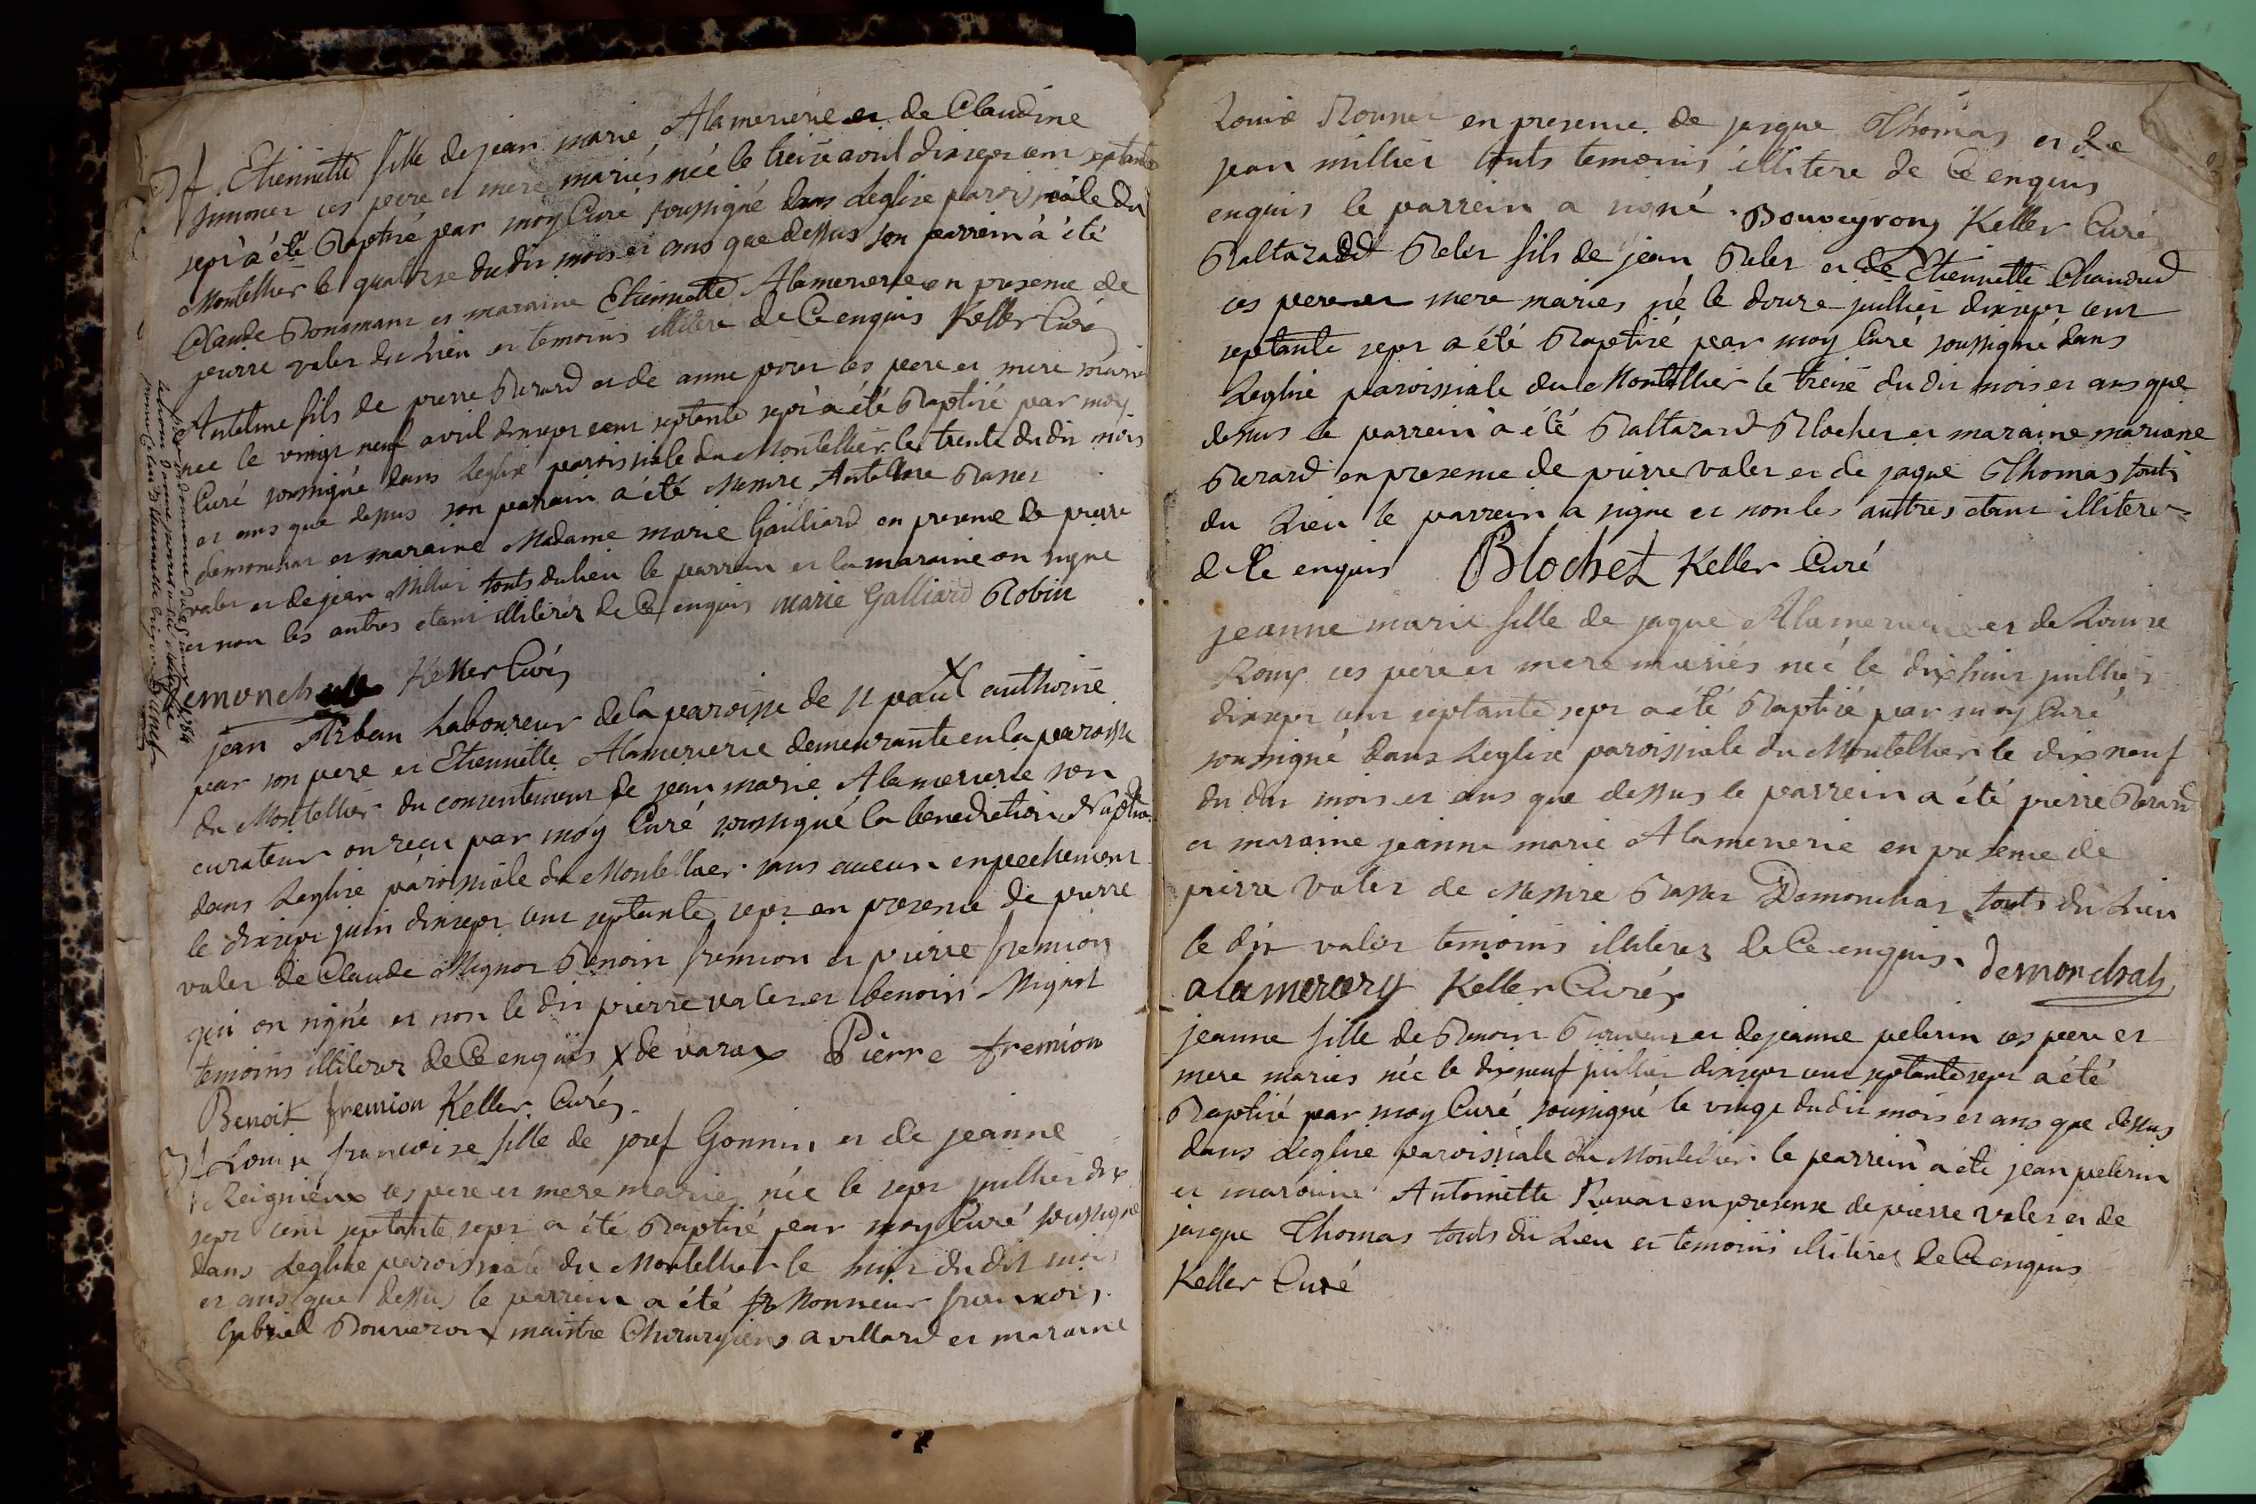 Etiennette fille de jean marie Alamercerie et de Claudine
simonet ces pere et mere mariés née le treize avril dixsept cent septante
sept à été Baptisé par moy Curé soussigné dans Leglise paroissiale du
Montellier le quatorse du dit mois et ans que dessus son parrein à été
Claude et maraine Etiennette Alamercerie en presence de
pierre valet du Lieu et temoins illitere de Ce enquis Keller Curé
Antelme fils de pierre Berard et de anne ces pere et mere mariés
née le vingt neuf avril dixsept cent septante sept à été Baptisé par moy
Curé soussigné dans Leglise paroissiale du Montellier le trente du dit mois
et ans que dessus son parrain à été Messire Antelme Basset
demonchat et maraine Madame marie Gailliard en presence de pierre
valet et de jean Millet touts du lieu le parrein et la maraine on signe
et non les autres etant illiterés de Ce enquis marie Galliard Robin
Keller Curé
jean Arban Laboureur de la paroisse de st paul authorisé
par son pere et Etiennette Alamercerie demeurante en la paroisse
du Montellier du consentement de jean marie Alamercerie son
curateur on reçu par moy Curé soussigné la benediction Nuptia
dans Leglise paroissiale du Montellier sans aucun enpechement
le dixsept juin dixsept cent septante sept en presence de pierre
valet de Claude Mignot Benoin fremion et pierre fremion
qui on signé et non le dit pierre valet et benoin Mignot
temoins illiteres de Ce enquis x de varax Pierre fremion
Benoit fremion Keller Curé
Louise francoise fille de josef Gonnin et de jeanne
Reignieux ces pere et mere mariés née le sept juillet dix
sept cent septante sept a été Baptisé par moy Curé soussigné
dans Leglise paroissiale du Montellier le huit du dit mois
et ans que dessus le parrein a été Monsieur francois
Gabriel Bouveron maistre Chirurgiens a villard et maraine
Louise en presence de jasque Thomas et de
jean millet touts temoins illitere de Ce enquis
enquis le parrein a signé Bouveyron Keller Curé
Baltazard Relet fils de jean Relet et de Etiennette Chanard
ces pere et mere mariés né le douze juillet dixsept cent
septante sept a été Baptisé par moy Curé soussigné dans
Leglise paroissiale du Montellier le treize du dit mois et ans que
dessus le parrein a été Baltazard Blochet et maraine mariane
Berard en presence de pierre valet et de jaque Thomas touts
du Lieu le parrein a signe et non les autres etant illitere
de Ce enquis Blochet Keller Curé
jeanne marie fille de jaque Alamercerie et de Louise
Roux ces pere et mere mariés née le dixhuit juillet
dixsept cent septante sept a été Baptisé par moy Curé
soussigné dans Leglise paroissiale du Montellier le dixneuf
du dit mois et ans que dessus le parrein a été pierre Berard
et maraine jeanne marie Alamercerie en presence de
pierre valet de Messire Basset Demonchat touts du Lieu
le dit valet temoins illiteres de Ce enquis demonchat
alamercery Keller Curé
jeanne fille de Benoit et de jeanne pelerin ces pere et
mere mariés née le dixneuf juillet dixsept cent septante sept a été
Baptisé par moy Curé soussigné le vingt du dit mois et ans que dessus
dans Leglise paroissiale du Montellier le parrein a été jean pelerin
et maraine Antoinette en presense de pierre valet et de
jasque Thomas touts du Lieu et temoins illiteres de Ce enquis
Keller Curé